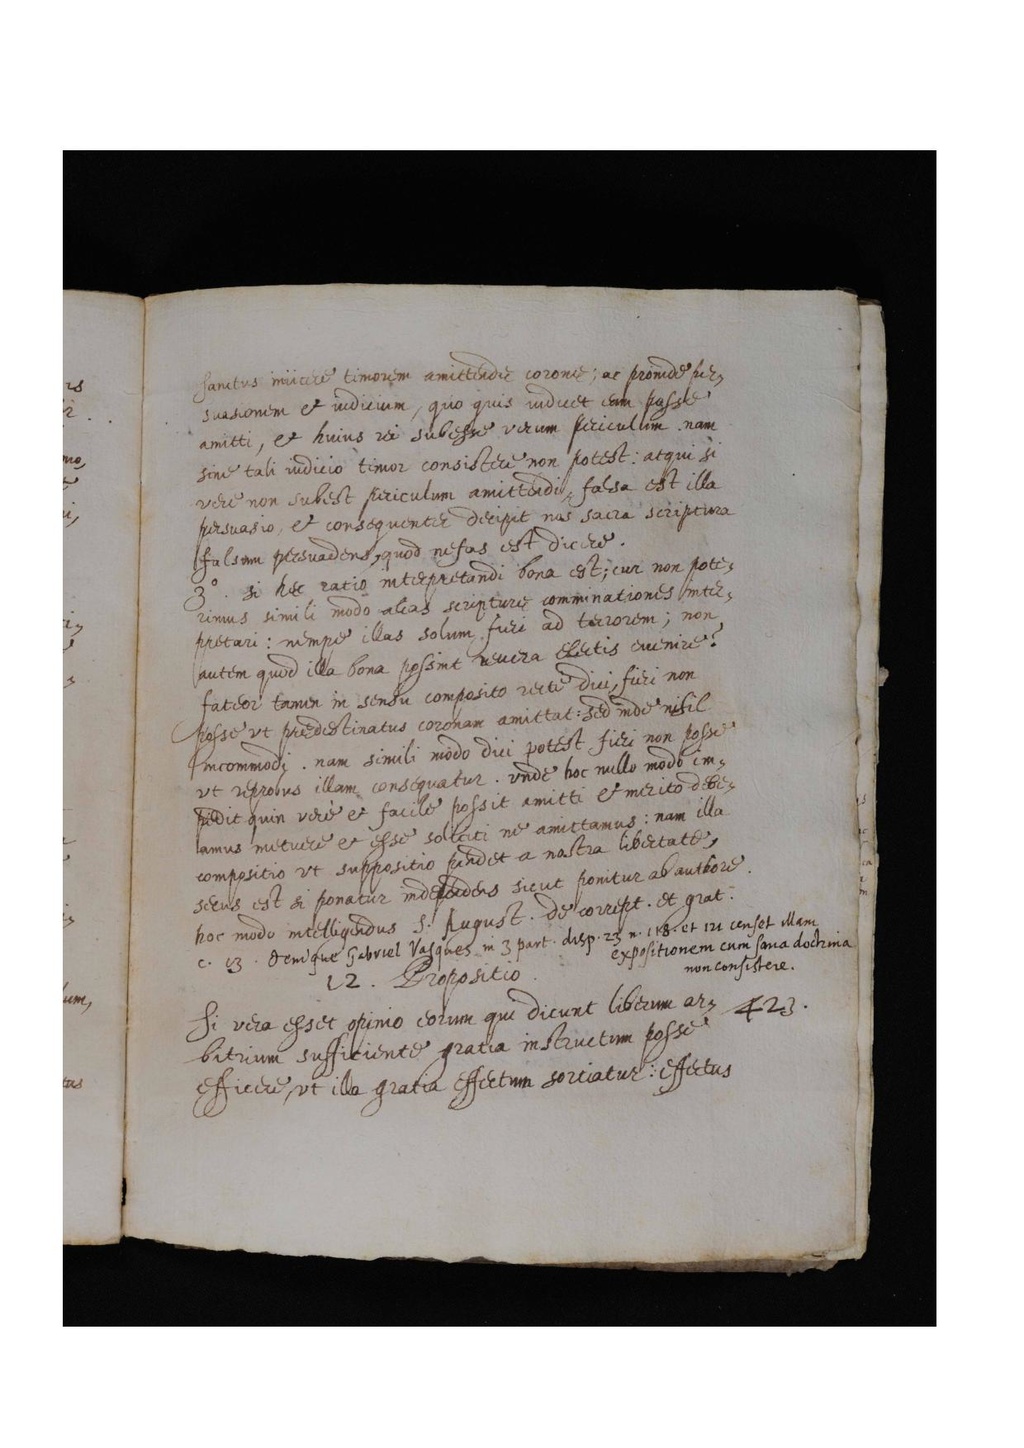 sanctus iniicere timorem amittendæ coronæ; ac proinde per,
suasionem et iudicium, quo quis iudicet eam posse
amitti, et huius rei subesse verum periculum. nam
sine tali iudicio timor consistere non potest: atqui si
vere non subest periculum amittendi, falsa est illa
persuasio, et consequenter decipit nos sacra scriptura
falsum persuadens, quod nefas est dicere.
3º. si hæc ratio interpretandi bona est; cur non pote,
rimus simili modo alias scripturæ comminationes inter,
pretari: nempe illas solum fieri ad terrorem; non
autem quod illa bona possint revera electis evenire?
fateor tamen in sensu composito recte dici, fieri non
posse vt prædestinatus coronam amittat: sed inde nihil
incommodi. nam simili modo dici potest fieri non posse
vt reprobus illam consequatur. vnde hoc nullo modo im,
pedit quin verè et facile possit amitti et merito debe,
amus metuere et esse soliciti ne amittamus: nam illa
compositio vt suppositio pendet a nostra libertate,
secus est si ponatur independens sicut ponitur ab authore.
hoc modo intelligendus S. August. de corrept. et grat.
c. 13. denique Gabriel Vasques in 3 part. disp. 23 n. 118. et 121 censet illam
expositionem cum sana doctrina
non consistere.
12. Propositio.
Si vera esset opinio eorum qui dicunt liberum ar, 423.
bitrium sufficiente gratia instructum posse
efficere, vt illa gratia effectum sortiatur: effectus